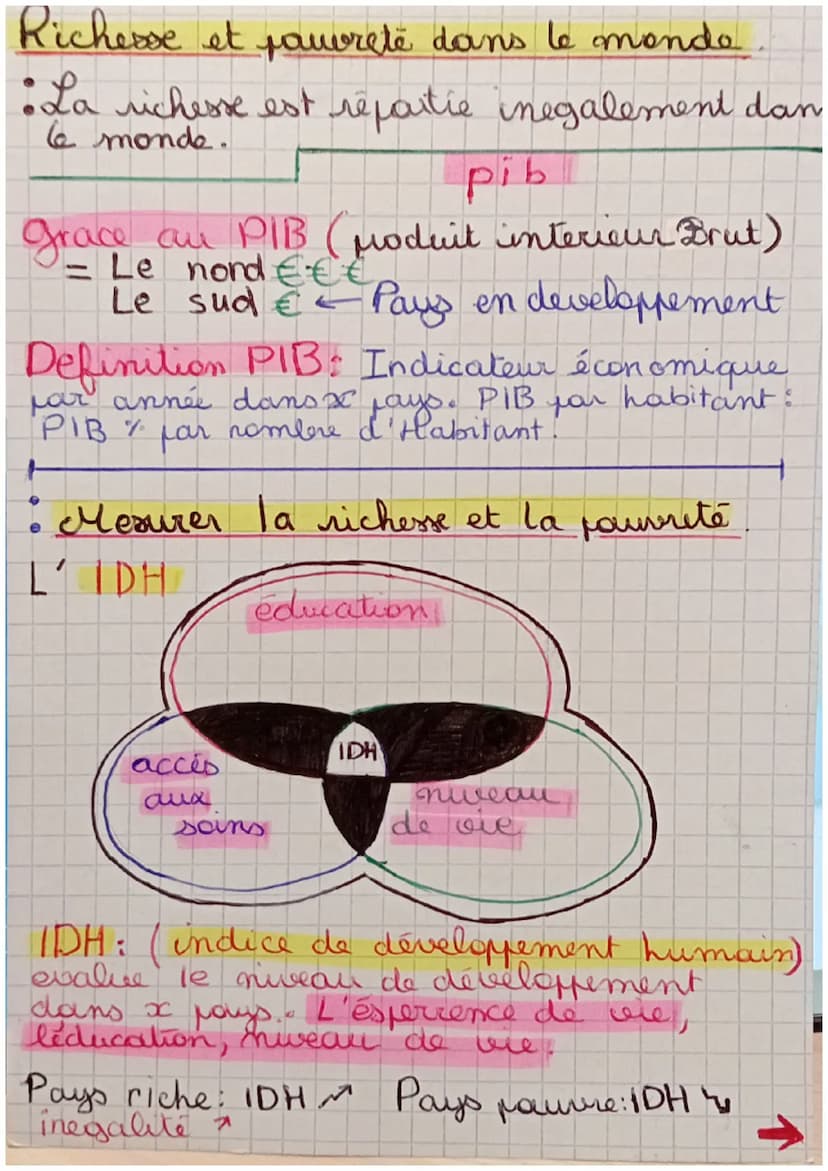 Richesse et pauvreté dans le monde.
: La richesse est répartie inegalement dans
le monde.
pib
Grace au PIB (produit interieur Brut)
= Le nord €€€
Le sud € ← Pays en developpement
Definition PIB: Indicateur économique
par année dans x pays. PIB par habitant :
PIB % par nombre d'Habitant.
: Mesurer la richesse et la pauvreté.
L' IDH
éducation
IDH
accés
aux
soins
niveau
de vie
IDH: (indice de développement humain)
evalue le niveau de développement
dans x pays. L'ésperence de vie,
l'éducation, niveau de vie.
Pays riche: IDH ↗ Pays pauvre: IDH ↘
inegalité ↗